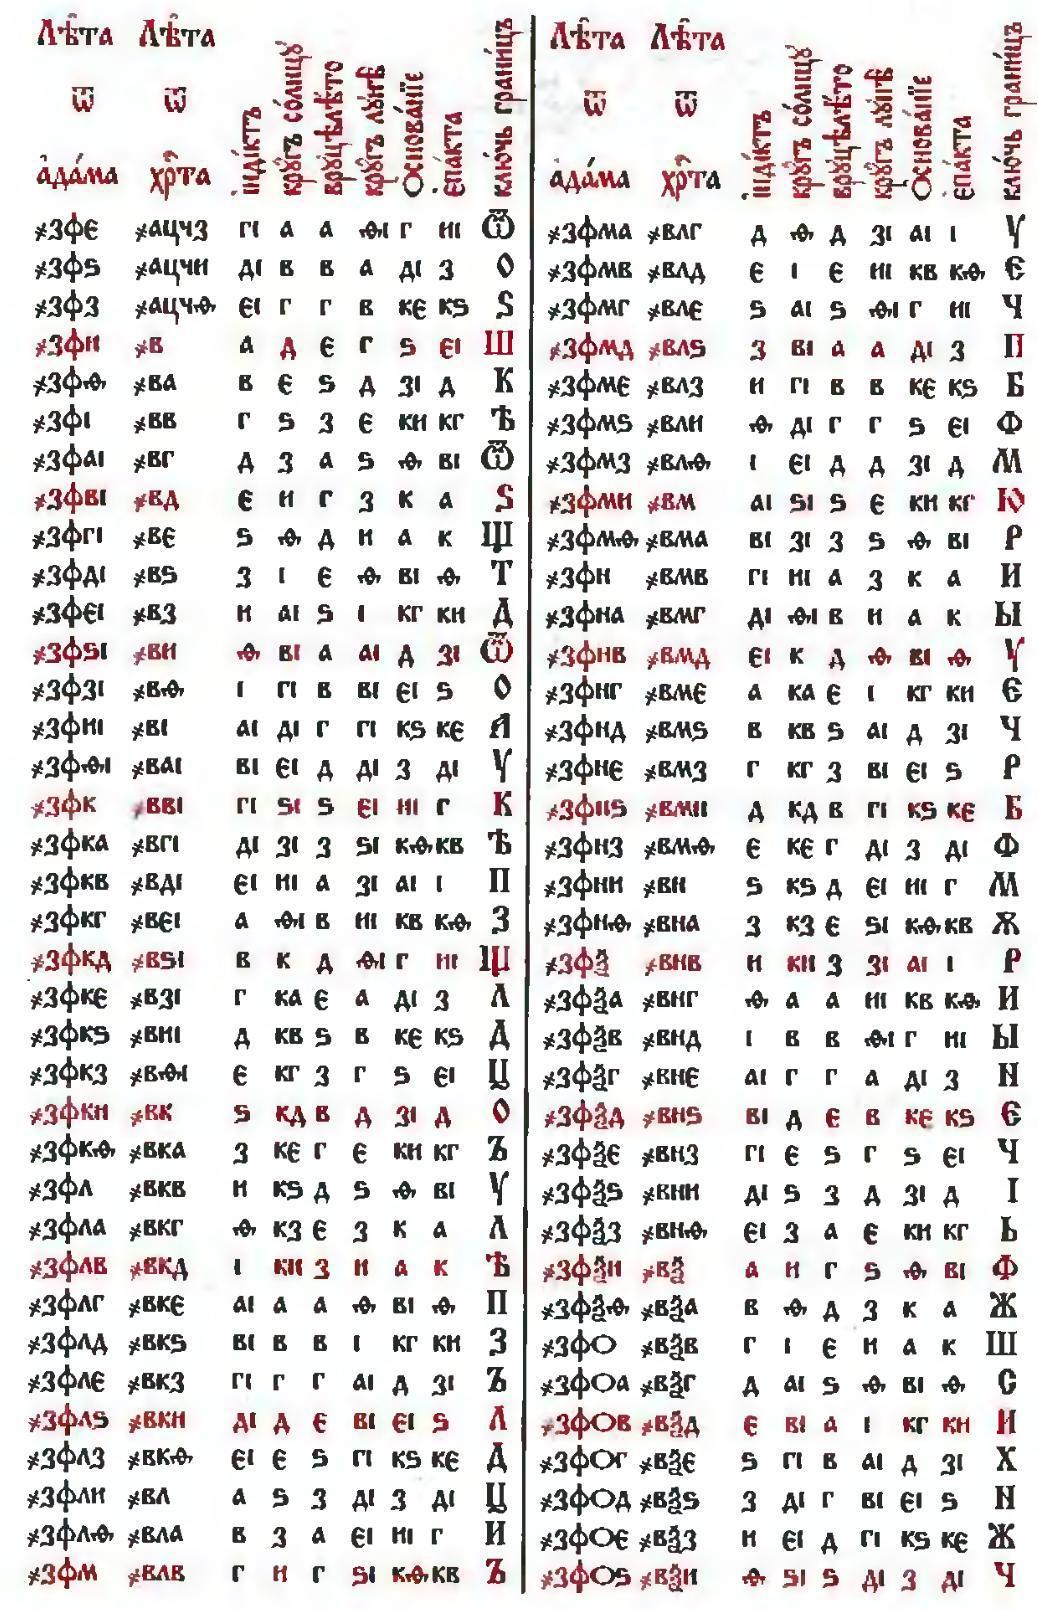 Лѣ́та Лѣ́та
ѿ ѿ
а҆да́ма хрⷭ҇та̀
і҆нді́ктъ
крꙋ́гъ со́лнцꙋ
врꙋцѣлѣ́то
крꙋ́гъ лꙋнѣ̀
Основа́нїе
є҆па́кта
клю́чь грани́цъ
҂зфе ҂ацчз гі а а ѳі г иі Ѿ
҂зфѕ ҂ацчи ді в в а ді з О
҂зфз ҂ацчѳ еі г г в ке кѕ Ѕ
҂зфи ҂в а д е г ѕ еі Ш
҂зфѳ ҂ва в е ѕ д зі д К
҂зфі ҂вв г ѕ з е ки кг Ѣ
҂зфаі ҂вг д з а ѕ ѳ ві Ѿ
҂зфві ҂вд е и г з к а Ѕ
҂зфгі ҂ве ѕ ѳ д и а к Щ
҂зфді ҂вѕ з і е ѳ ві ѳ Т
҂зфеі ҂вз и аі ѕ і кг ки Д
҂зфѕі ҂ви ѳ ві а аі д зі Ѿ
҂зфзі ҂вѳ і гі в ві еі ѕ О
҂зфиі ҂ві аі ді г гі кѕ ке А
҂зфѳі ҂ваі ві еі д ді з ді Ѵ
҂зфк ҂вві гі ѕі ѕ еі иі г К
҂зфка ҂вгі ді зі з ѕі кѳ кв Ѣ
҂зфкв ҂вді еі иі а зі аі і П
҂зфкг ҂веі а ѳі в иі кв кѳ З
҂зфкд ҂вѕі в к д ѳі г иі Щ
҂зфке ҂взі г ка е а ді з Л
҂зфкѕ ҂виі д кв ѕ в ке кѕ Д
҂зфкз ҂вѳі е кг з г ѕ еі Ц
҂зфки ҂вк ѕ кд в д зі д О
҂зфкѳ ҂вка з ке г е ки кг Ъ
҂зфл ҂вкв и кѕ д ѕ ѳ ві Ѵ
҂зфла ҂вкг ѳ кз е з к а Л
҂зфлв ҂вкд і ки з и а к Ѣ
҂зфлг ҂вке аі а а ѳ ві ѳ П
҂зфлд ҂вкѕ ві в в і кг ки З
҂зфле ҂вкз гі г г аі д зі Ъ
҂зфлѕ ҂вки ді д е ві еі ѕ Л
҂зфлз ҂вкѳ еі е ѕ гі кѕ ке Д
҂зфли ҂вл а ѕ з ді з ді Ц
҂зфлѳ ҂вла в з а еі иі г И
҂зфм ҂влв г и г ѕі кѳ кв Ъ
Лѣ́та Лѣ́та
ѿ ѿ
а҆да́ма хрⷭ҇та̀
і҆нді́ктъ
крꙋ́гъ со́лнцꙋ
врꙋцѣлѣ́то
крꙋ́гъ лꙋнѣ̀
Основа́нїе
є҆па́кта
клю́чь грани́цъ
҂зфма ҂влг д ѳ д зі аі і Ѵ
҂зфмв ҂влд е і е иі кв кѳ Є
҂зфмг ҂вле ѕ аі ѕ ѳі г иі Ч
҂зфмд ҂влѕ з ві а а ді з П
҂зфме ҂влз и гі в в ке кѕ Б
҂зфмѕ ҂вли ѳ ді г г ѕ еі Ф
҂зфмз ҂влѳ і еі д д зі д М
҂зфми ҂вм аі ѕі ѕ е ки кг Ю
҂зфмѳ ҂вма ві зі з ѕ ѳ ві Р
҂зфн ҂вмв гі иі а з к а И
҂зфна ҂вмг ді ѳі в и а к Ы
҂зфнв ҂вмд еі к д ѳ ві ѳ Ѵ
҂зфнг ҂вме а ка е і кг ки Є
҂зфнд ҂вмѕ в кв ѕ аі д зі Ч
҂зфне ҂вмз г кг з ві еі ѕ Р
҂зфнѕ ҂вми д кд в гі кѕ ке Б
҂зфнз ҂вмѳ е ке г ді з ді Ф
҂зфни ҂вн ѕ кѕ д еі иі г М
҂зфнѳ ҂вна з кз е ѕі кѳ кв Ѫ
҂зфѯ ҂внв и ки з зі аі і Р
҂зфѯа ҂внг ѳ а а иі кв кѳ И
҂зфѯв ҂внд і в в ѳі г иі Ы
҂зфѯг ҂вне аі г г а ді з Н
҂зфѯд ҂внѕ ві д е в ке кѕ Є
҂зфѯе ҂внз гі е ѕ г ѕ еі Ч
҂зфѯѕ ҂вни ді ѕ з д зі д І
҂зфѯз ҂внѳ еі з а е ки кг Ь
҂зфѯи ҂вѯ а и г ѕ ѳ ві Ф
҂зфѯѳ ҂вѯа в ѳ д з к а Ж
҂зфо ҂вѯв г і е и а к Ш
҂зфоа ҂вѯг д аі ѕ ѳ ві ѳ С
҂зфов ҂вѯд е ві а і кг ки И
҂зфог ҂вѯе ѕ гі в аі д зі Х
҂зфод ҂вѯѕ з ді г ві еі ѕ Н
҂зфое ҂вѯз и еі д гі кѕ ке Ж
҂зфоѕ ҂вѯи ѳ ѕі ѕ ді з ді Ч